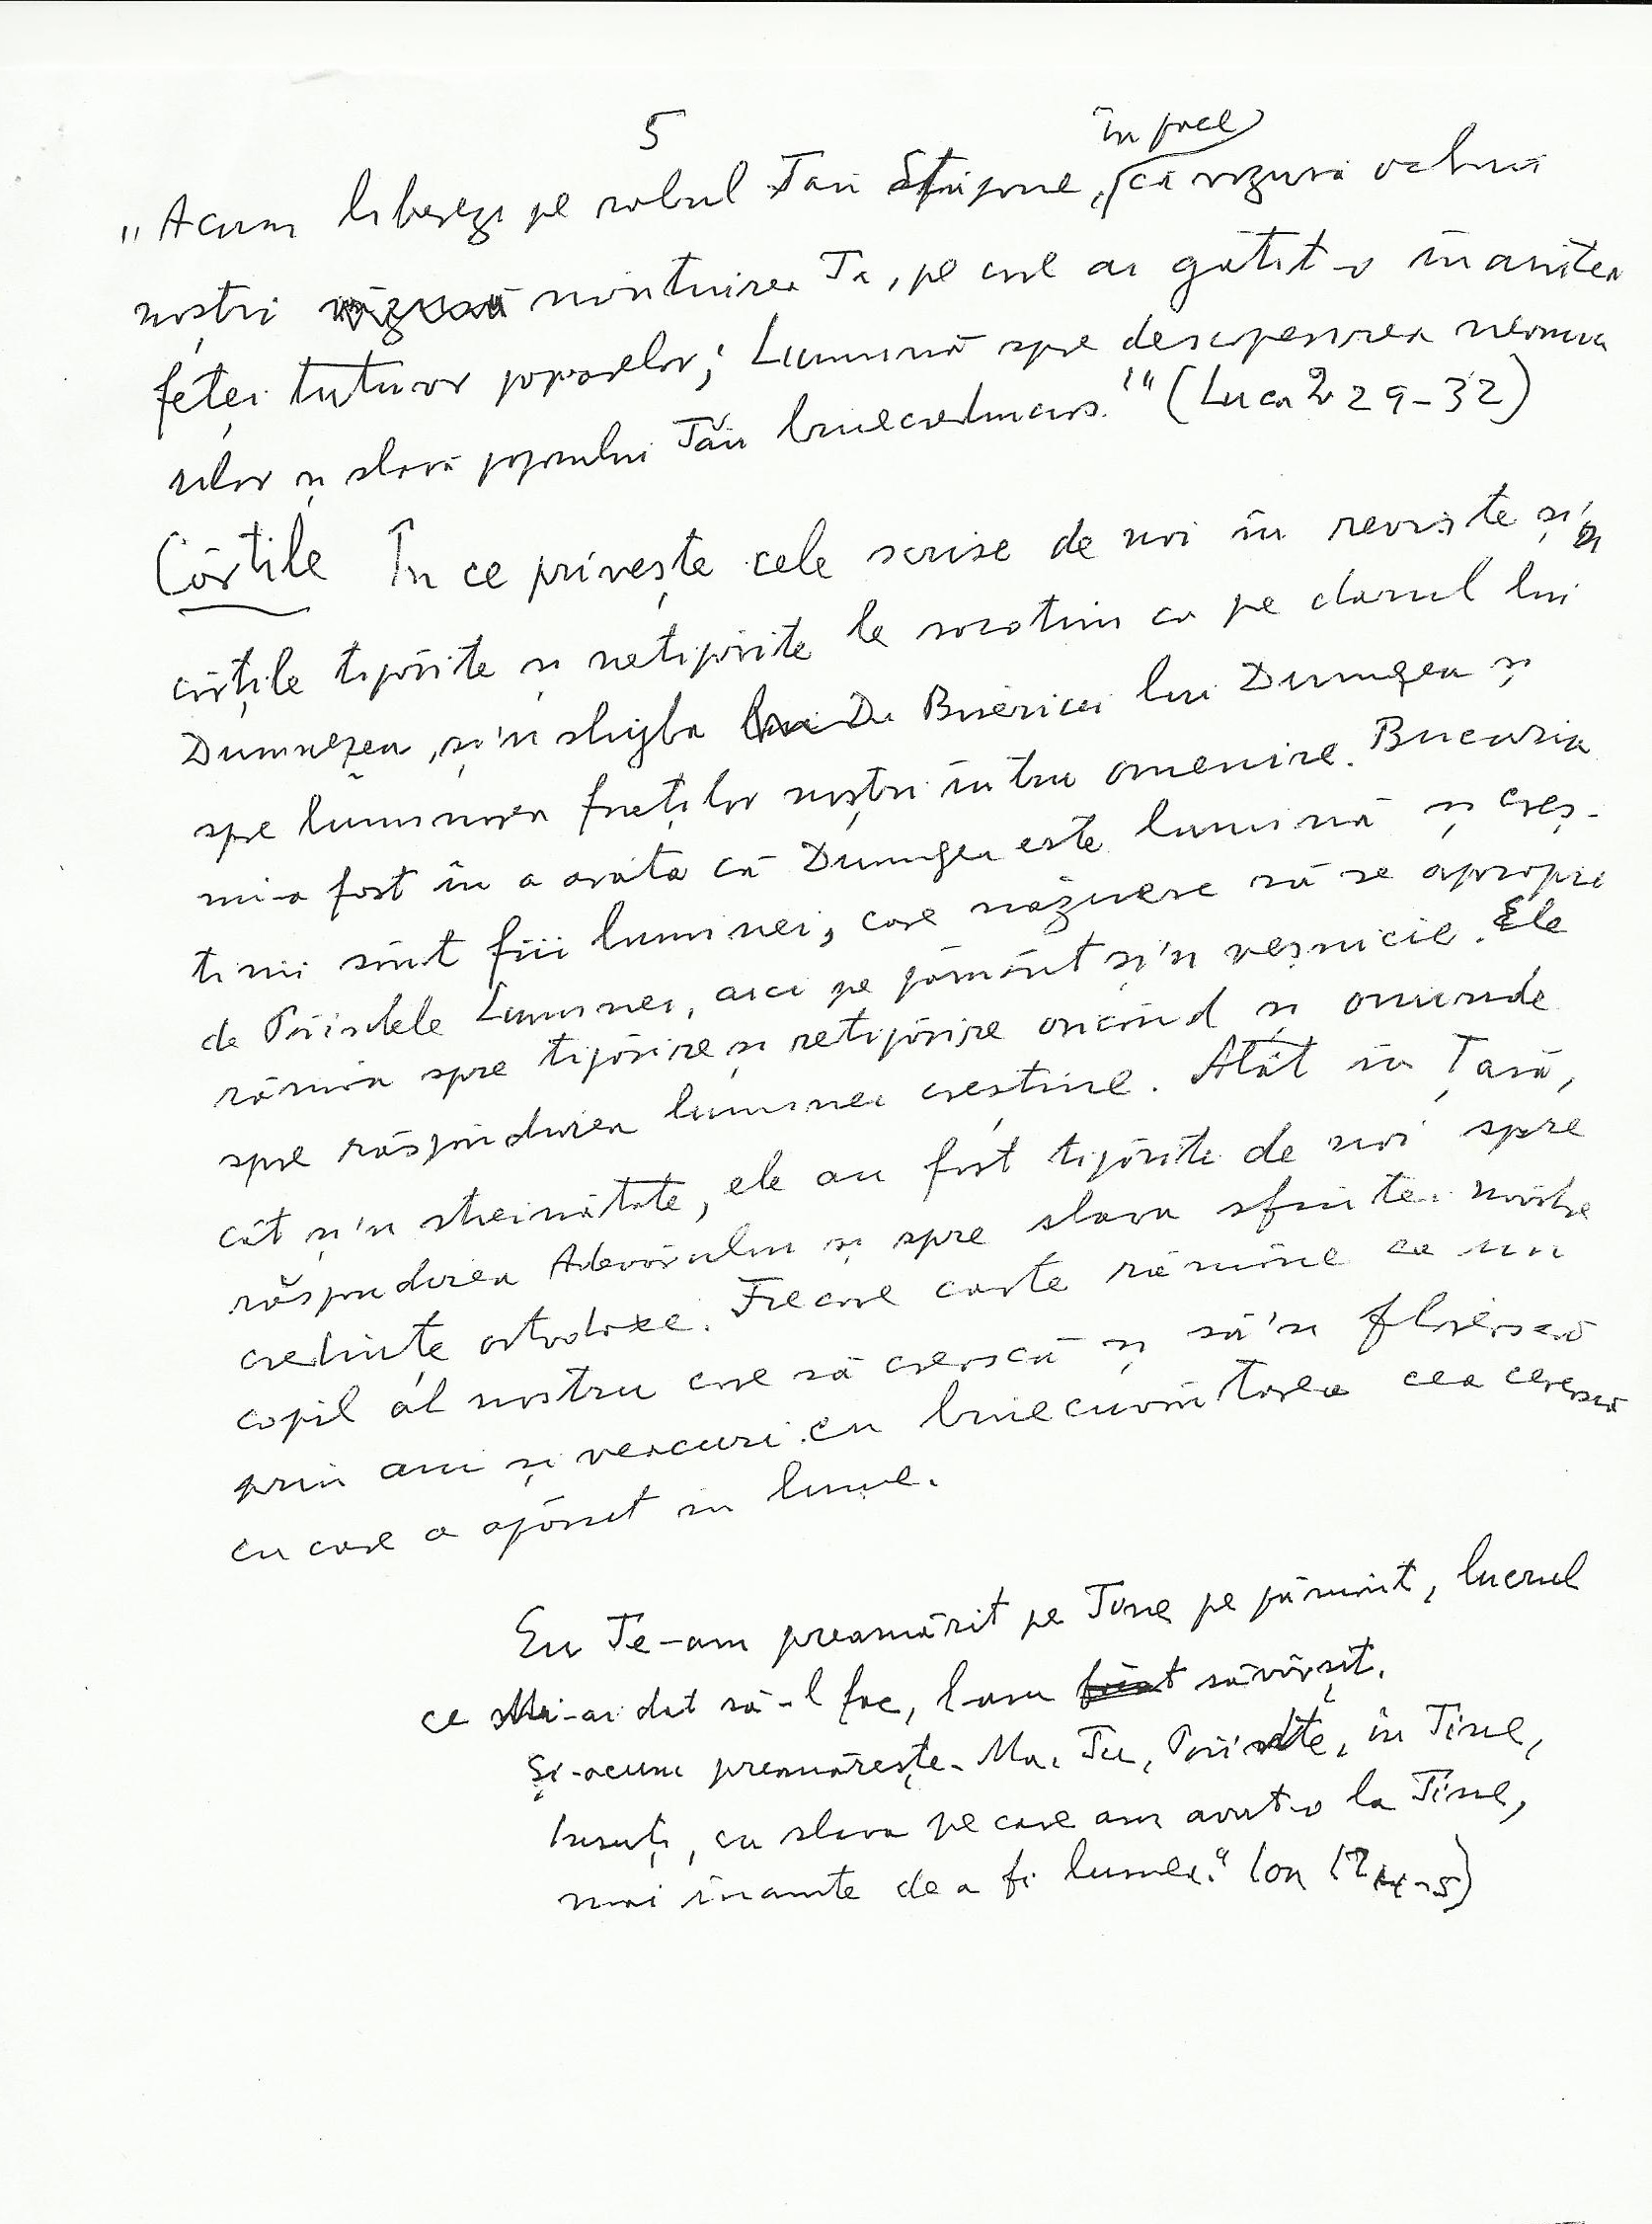 5
în pace
„Acum liberezi pe robul Tău Stăpâne, că văzură ochii
noștri mântuirea Ta, pe care ai gătit-o înaintea
feței tuturor popoarelor; Lumină spre descoperirea neamu
rilor și slavă poporului Tău binecredincios." (Luca 2 29-32)
Cărțile În ce privește cele scrise de noi în reviste și'n
cărțile tipărite și netipărite le socotim ca pe darul lui
Dumnezeu, și'n slujba Bisericii lui Dumnezeu și
spre luminarea fraților noștri întru omenire. Bucuria
mi-a fost în a arăta că Dumnezeu este lumină și creș-
tinii sînt fiii luminei, care năzuesc să se apropie
de Părintele Luminei, aici pe pământ și'n veșnicie. Ele
rămân spre tipărire și retipărire oricînd și oriunde
spre răspîndirea luminei creștine. Atât în Țară,
cât și'n streinătate, ele au fost tipărite de noi spre
răspîndirea Adevărului și spre slava sfintei noastre
credințe ortodoxe. Fiecare carte rămîne ca un
copil al nostru care să crească și să'n florească
prin ani și veacuri cu binecuvîntarea cea cerească
cu care a apărut în lume.
Eu Te-am preamărit pe Tine pe pământ, lucrul
ce Mi-ai dat să-l fac, l-am săvîrșit.
Și-acum preamărește-Mă, Tu, Părinte, în Tine,
Însuți, cu slava pe care am avut-o la Tine,
mai înainte de a fi lumea." Ion 17 4-5)